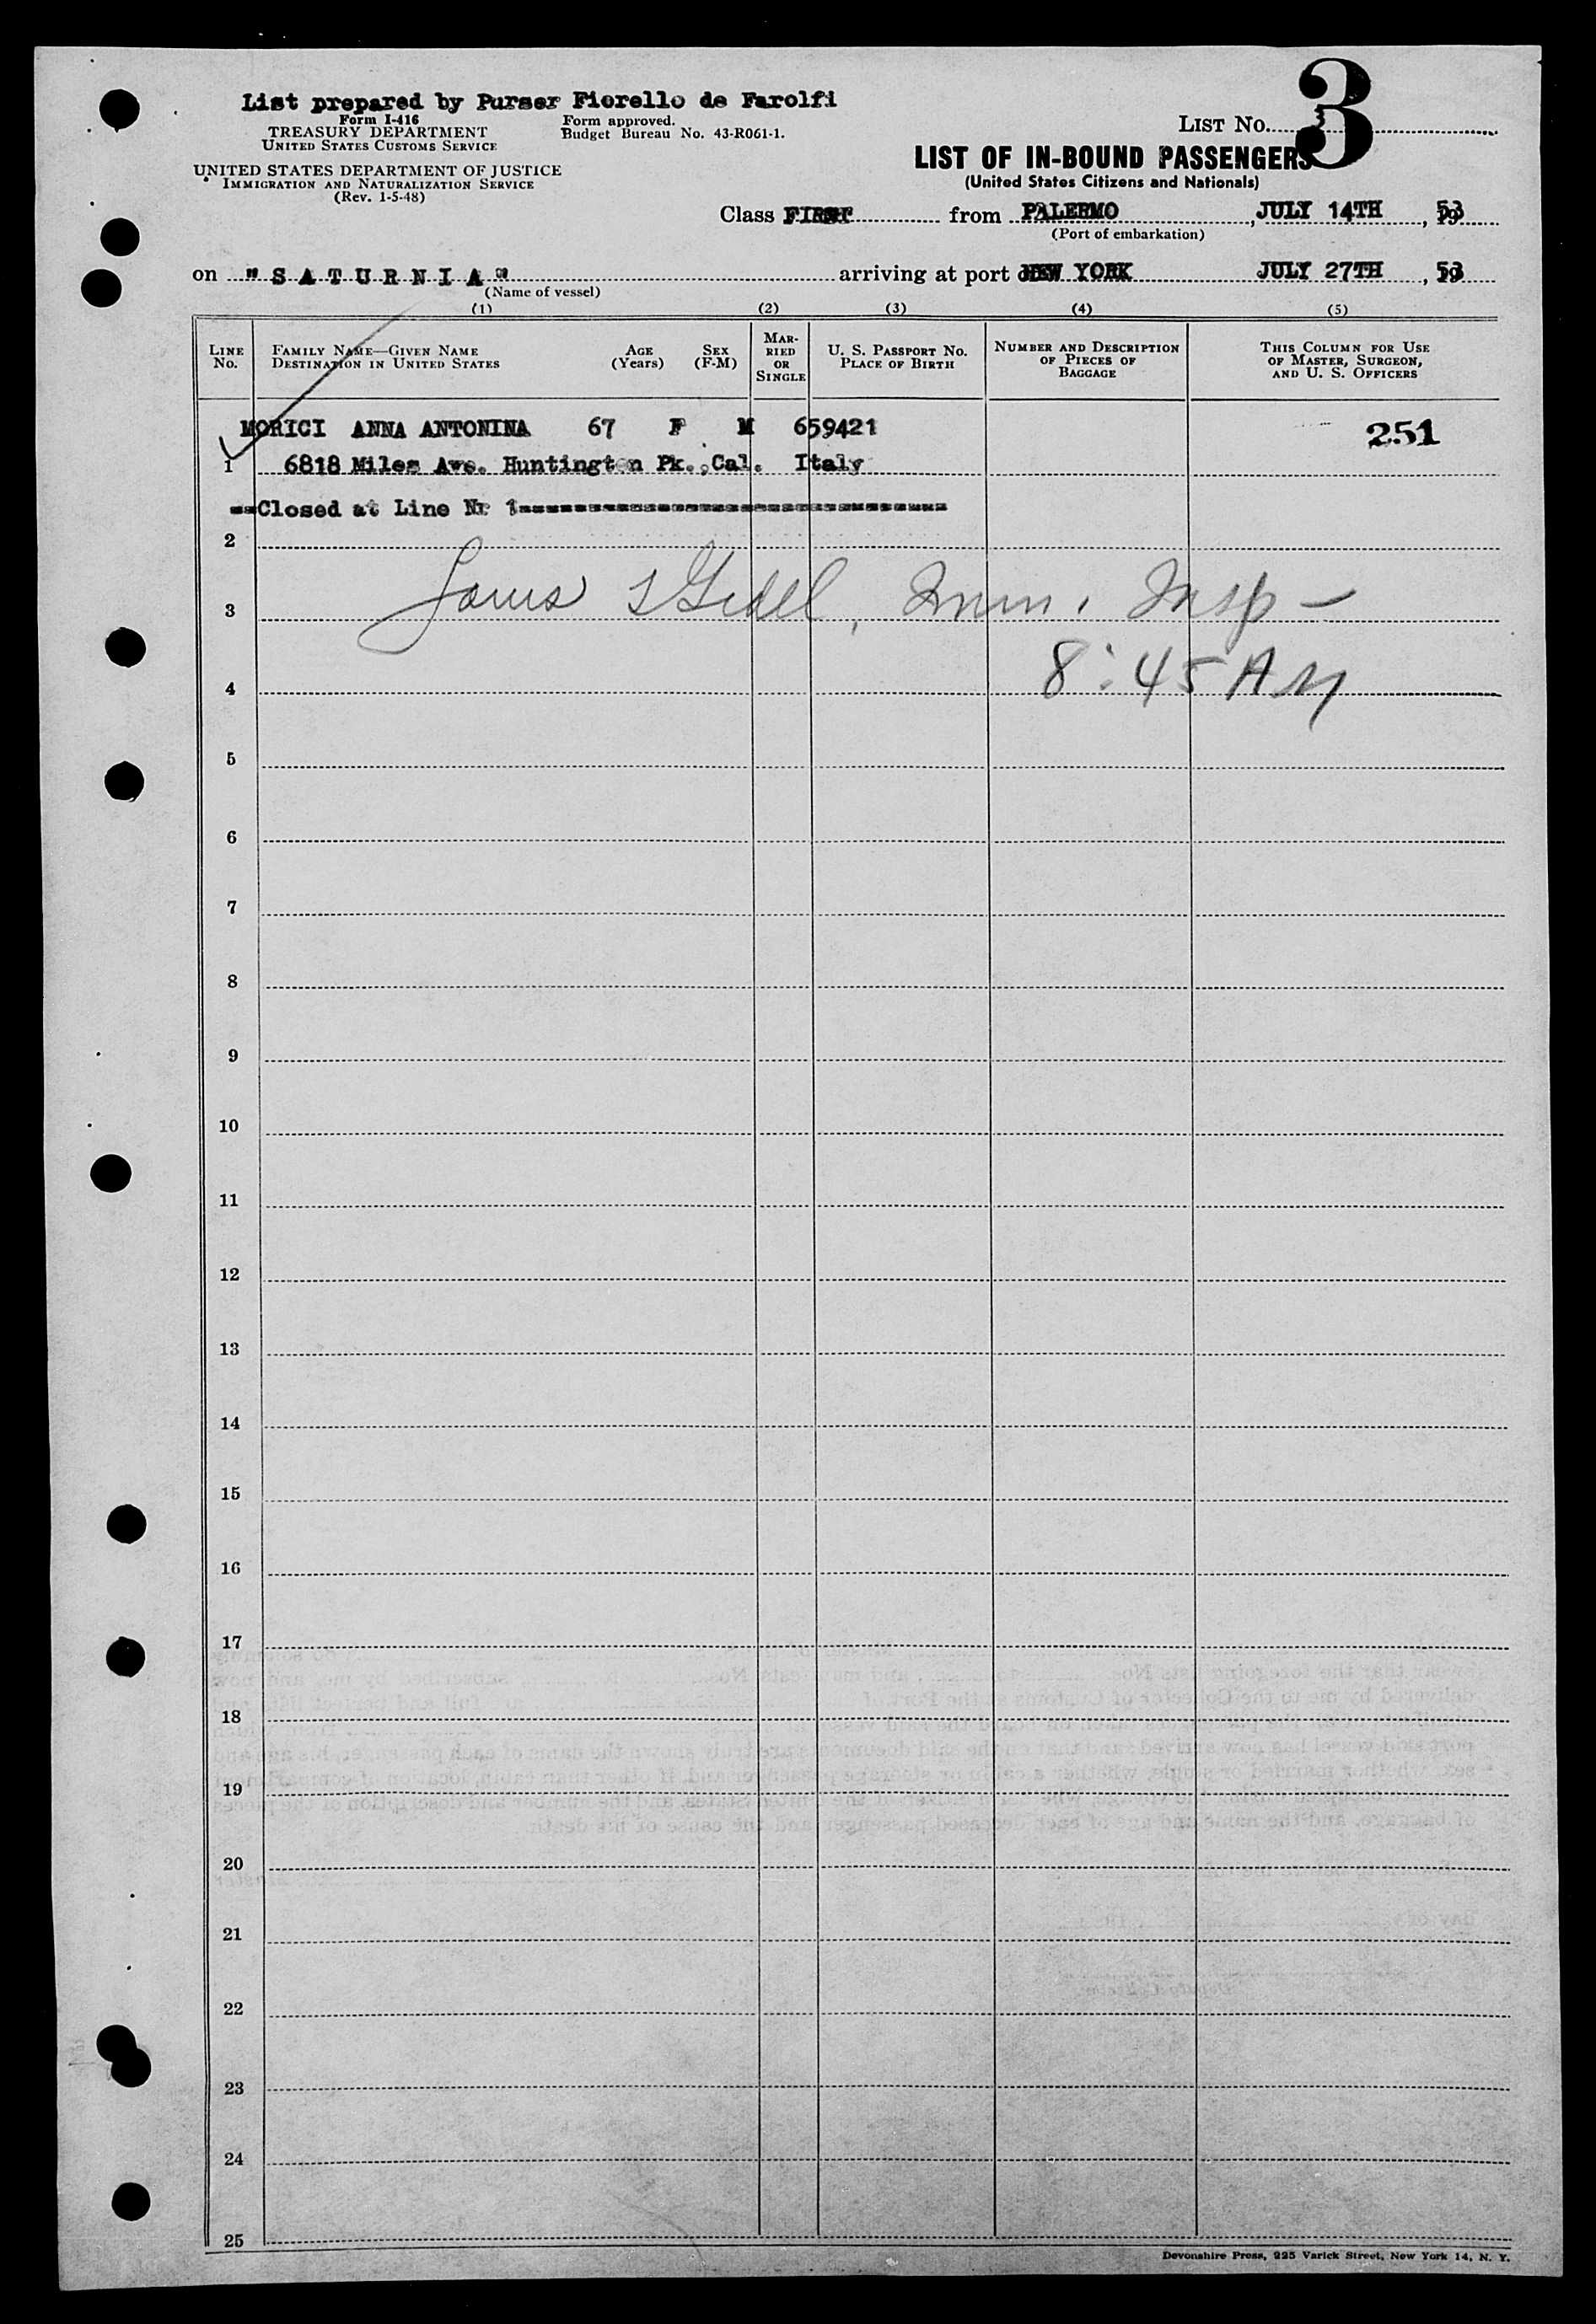 List prepared by Purser Fiorello de Farolfi
Form I-416
TREASURY DEPARTMENT
UNITED STATES CUSTOMS SERVICE
Form approved.
Budget Bureau No. 43-R061-1.
UNITED STATES DEPARTMENT OF JUSTICE
IMMIGRATION AND NATURALIZATION SERVICE
(Rev. 1-5-48)
LIST NO. 3
LIST OF IN-BOUND PASSENGERS
(United States Citizens and Nationals)
Class FIRST from PALERMO, JULY 14TH, 53
(Port of embarkation)
on "SATURNIA" arriving at port of NEW YORK JULY 27TH, 53
(Name of vessel)
(1) (2) (3) (4) (5)
LINE NO.
FAMILY NAME—GIVEN NAME
DESTINATION IN UNITED STATES
AGE (Years)
SEX (F-M)
MARRIED OR SINGLE
U. S. PASSPORT NO.
PLACE OF BIRTH
NUMBER AND DESCRIPTION OF PIECES OF BAGGAGE
THIS COLUMN FOR USE OF MASTER, SURGEON, AND U. S. OFFICERS
MORICI ANNA ANTONINA 67 F M 659421 251
1 6818 Miles Ave. Huntington Pk.,Cal. Italy
Closed at Line Nr 1
2
3 Imm. Insp –
8:45 AM
4
5
6
7
8
9
10
11
12
13
14
15
16
17
18
19
20
21
22
23
24
25
Devonshire Press, 225 Varick Street, New York 14, N. Y.